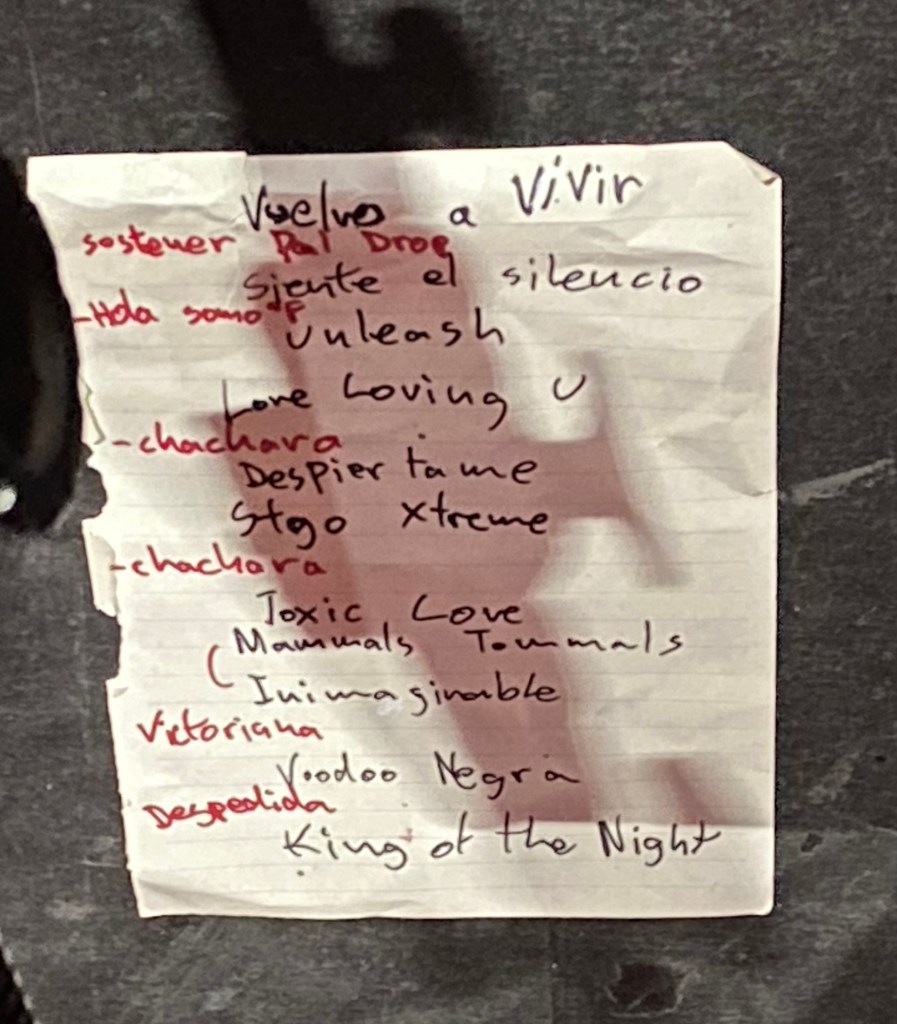 Vuelvo a ViVir
sostener Pal Drop
Siente el silencio
-Hola somos
Unleash
Love Loving U
-chachara
Despiertame
Stgo Xtreme
-chachara
Toxic Love
Mammals Tommals
( Inimaginable
Victoriana
Voodoo Negra
Despedida
King of the Night